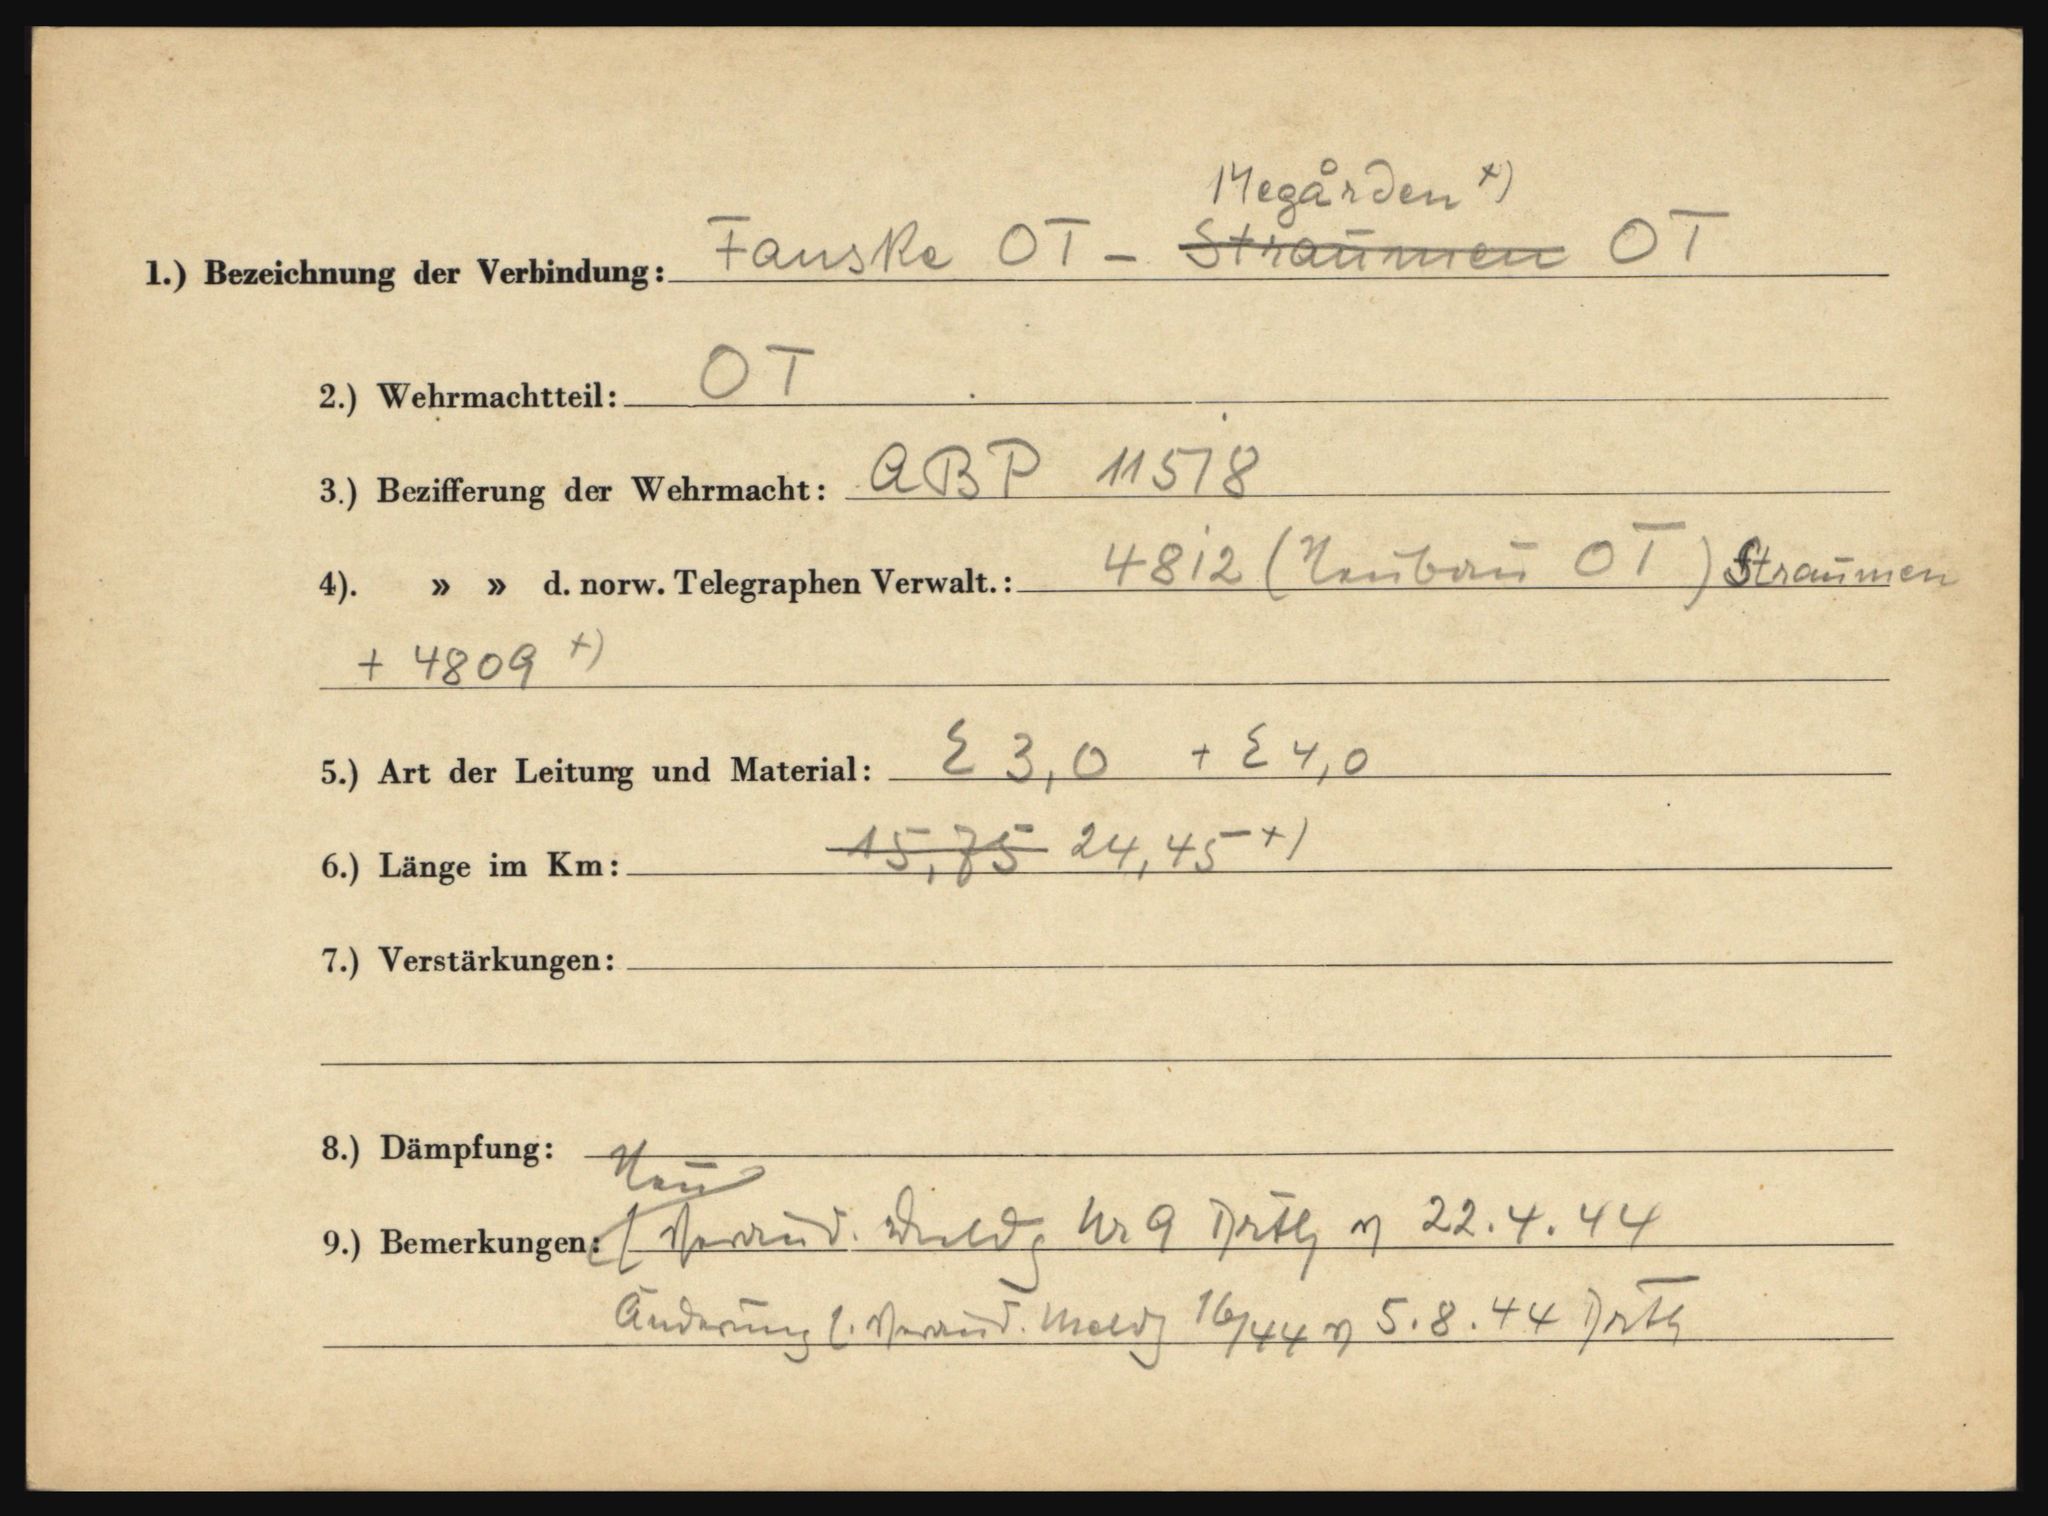 Megården +)
1.) Bezeichnung der Verbindung: Fauske OT – Straumen OT
2.) Wehrmachtteil: OT
3.) Bezifferung der Wehrmacht: ABP 11578
4). » » d. norw. Telegraphen Verwalt.: 4812 (Neubau OT) Straumen
+ 4809 +)
5.) Art der Leitung und Material: E 3,0 + E 4,0
6.) Länge im Km: 15,75 24,45 +)
7.) Verstärkungen:
8.) Dämpfung:
Neu
9.) Bemerkungen: Nr 9 v 22.4.44
Änderung 16/44 v 5.8.44